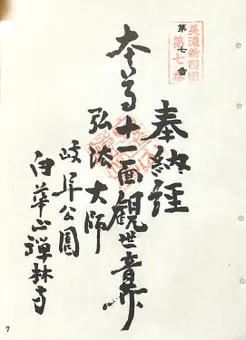 美濃新四國
第七番
奉納経
本尊十一面観世音菩薩
弘法大師
岐阜公園
白華山禅林寺
7